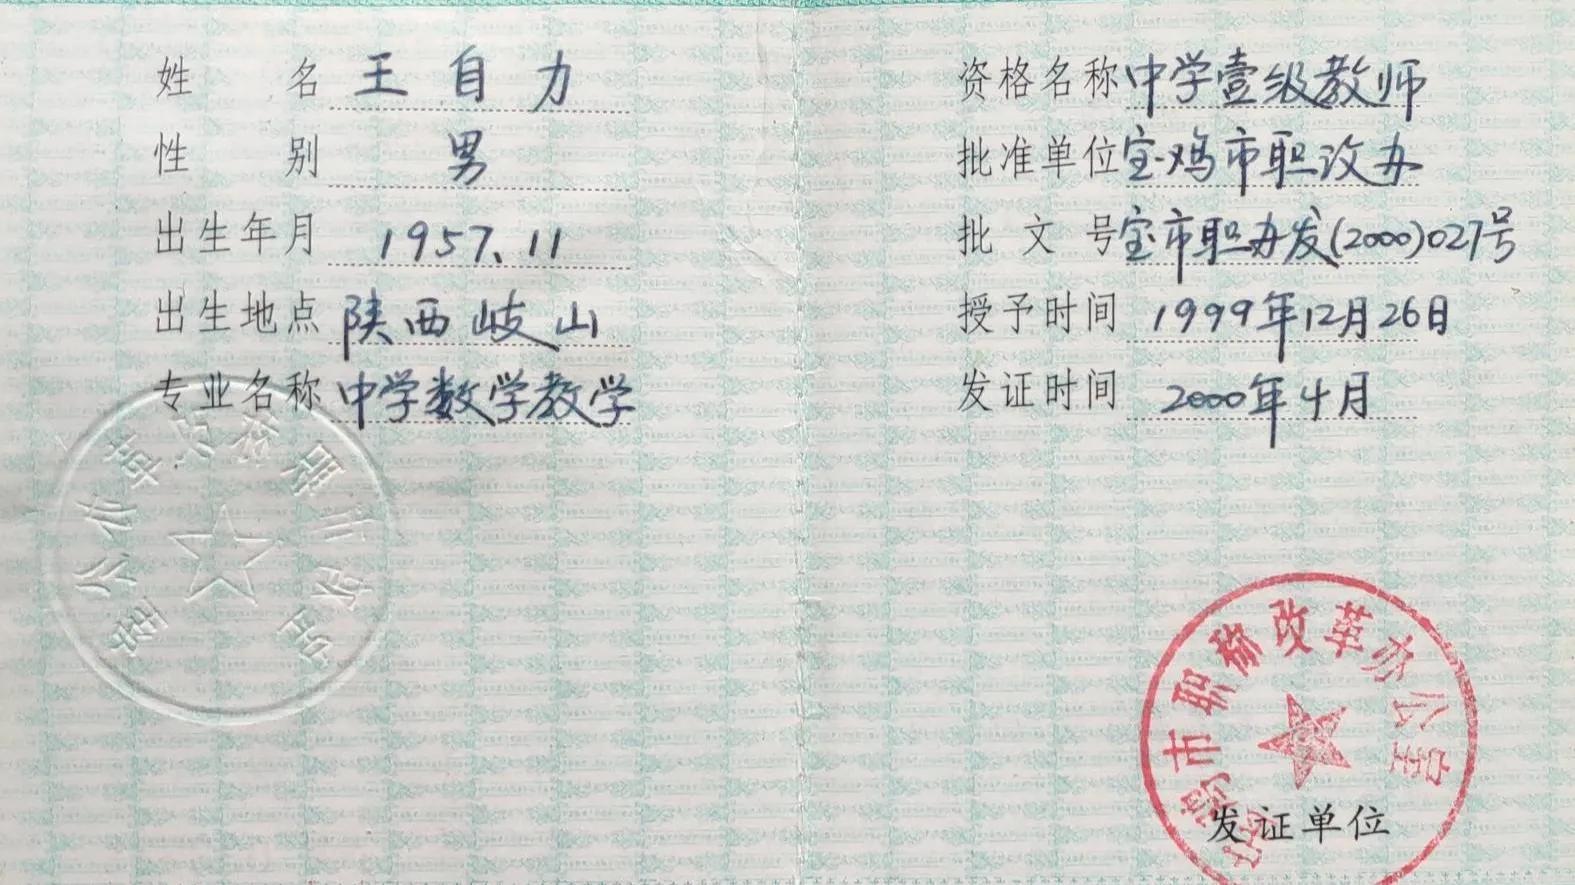 姓 名 王自力
性 别 男
出生年月 1957.11
出生地点 陕西岐山
专业名称 中学数学教学
资格名称 中学壹级教师
批准单位 宝鸡市职改办
批 文 号 宝市职办发(2000)027号
授予时间 1999年12月26日
发证时间 2000年4月
鸡市职称改革办公室
发证单位